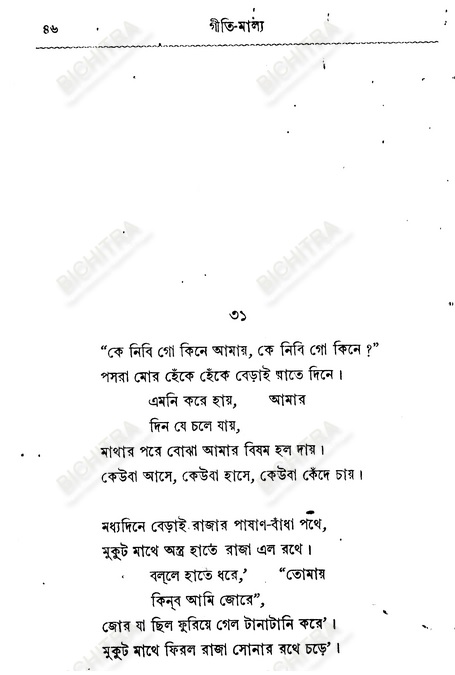 ৪৬ গীতি-মাল্য
৩১
“কে নিবি গো কিনে আমায়, কে নিবি গো কিনে ?”
পসরা মোর হেঁকে হেঁকে বেড়াই রাতে দিনে ।
এমনি করে হায়, আমার
দিন যে চলে যায়,
মাথার পরে বোঝা আমার বিষম হল দায় ।
কেউবা আসে, কেউবা হাসে, কেউবা কেঁদে চায় ।
মধ্যদিনে বেড়াই রাজার পাষাণ-বাঁধা পথে,
মুকুট মাথে অস্ত্র হাতে রাজা এল রথে ।
বল্‌লে হাতে ধরে,’ “তোমায়
কিন্‌ব আমি জোরে”,
জোর যা ছিল ফুরিয়ে গেল টানাটানি করে’ ।
মুকুট মাথে ফিরল রাজা সোনার রথে চড়ে’ ।
BICHITRA
BICHITRA
BICHITRA
BICHITRA
BICHITRA
BICHITRA